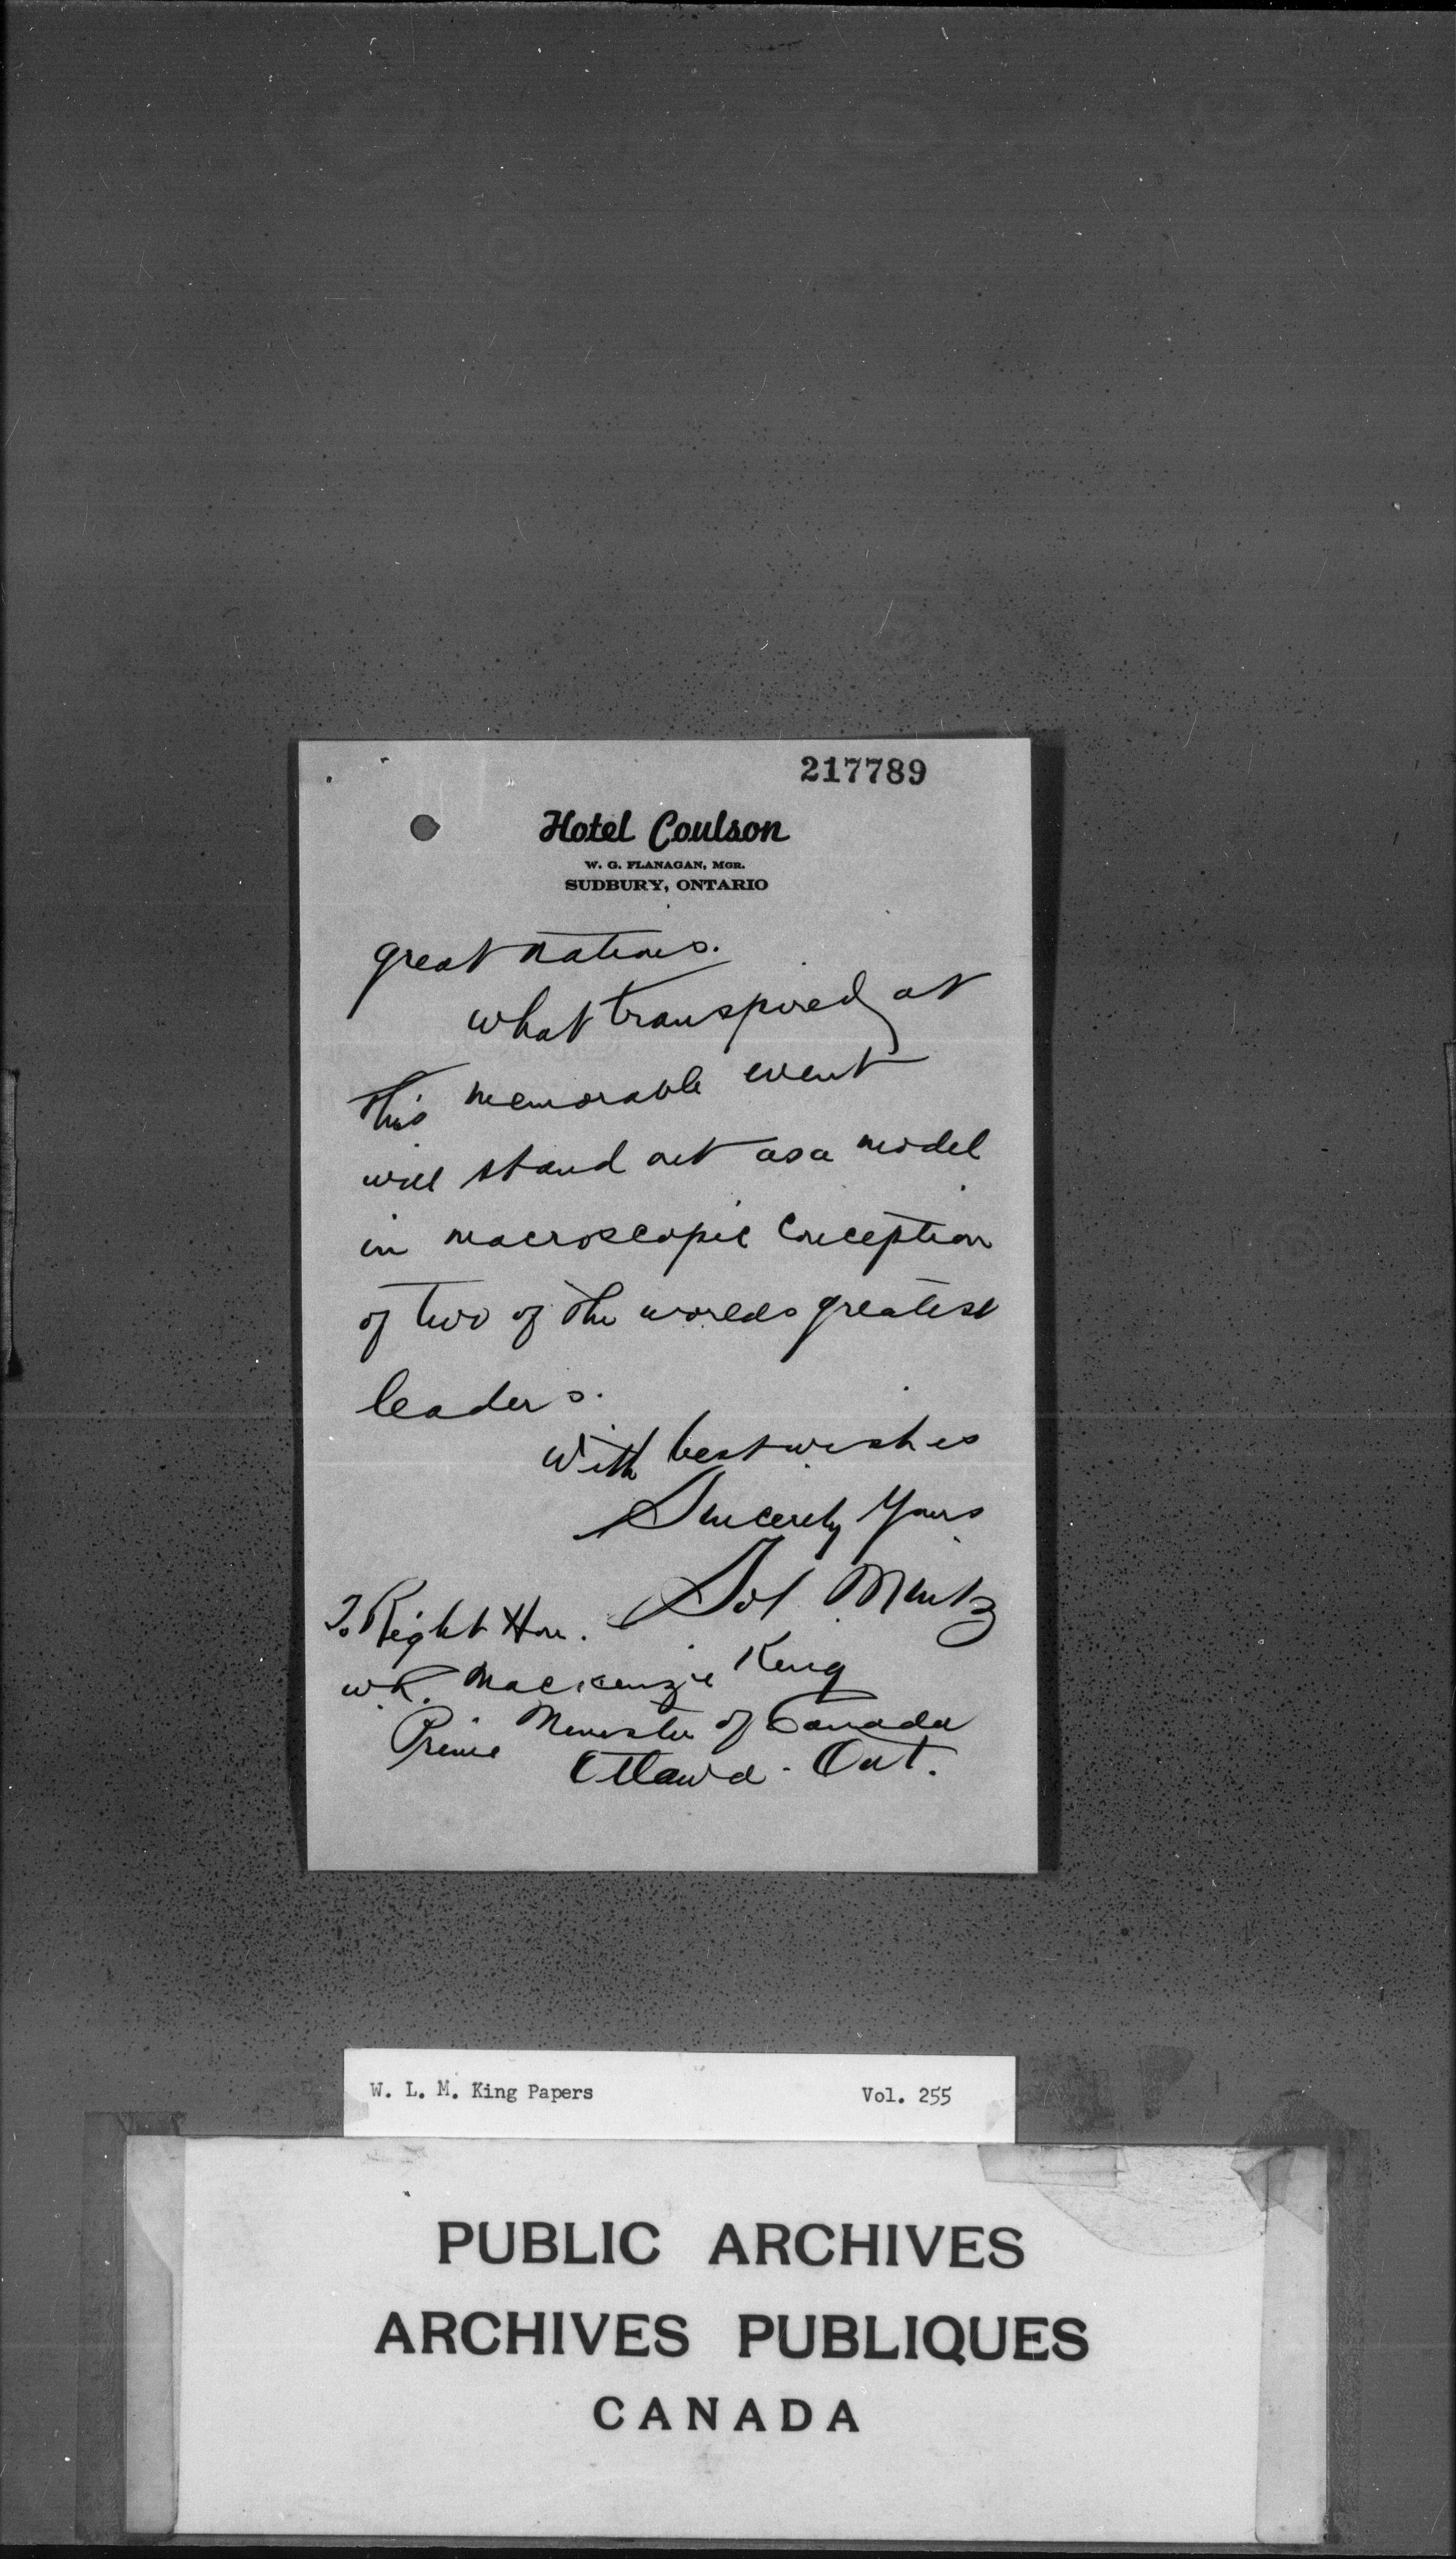 217789
Hotel Coulson
W. G. FLANAGAN, MGR.
SUDBURY, ONTARIO
great nations.
what transpired at
this memorable event
will stand out as a model
in macroscopic conception
of two of the worlds greatest
leaders.
With best wishes
Sincerely Yours
Sol Mintz
To Right Hon.
W. R. Mackenzie King
Prime Minister of Canada
Ottawa - Ont.
W. L. M. King Papers Vol. 255
PUBLIC ARCHIVES
ARCHIVES PUBLIQUES
CANADA